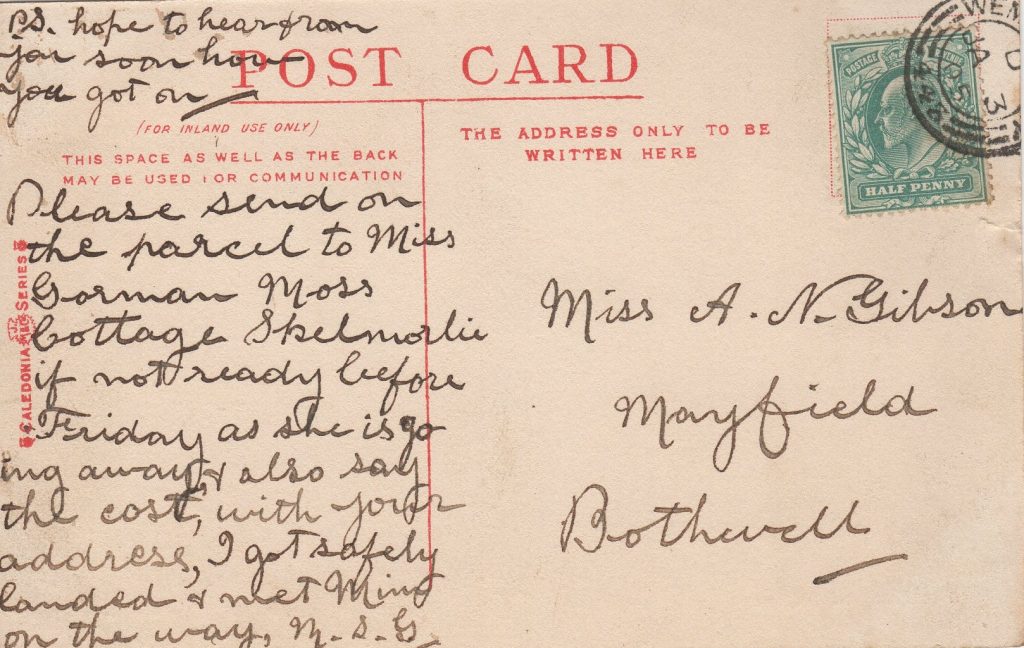 P.S. hope to hear from
you soon how
you got on
POST CARD
(FOR INLAND USE ONLY)
THIS SPACE AS WELL AS THE BACK
MAY BE USED FOR COMMUNICATION
THE ADDRESS ONLY TO BE
WRITTEN HERE
POSTAGE
HALF PENNY
WEM
JA
3
Please send on
the parcel to Miss
Gorman Moss
Cottage Skelmorlie
if not ready before
Friday as she is go
ing away, & also say
the cost, with your
address, I got safely
landed & met Ming
on the way, M. S. G.
CALEDONIA SERIES
Miss A. N. Gibson
Mayfield
Bothwell